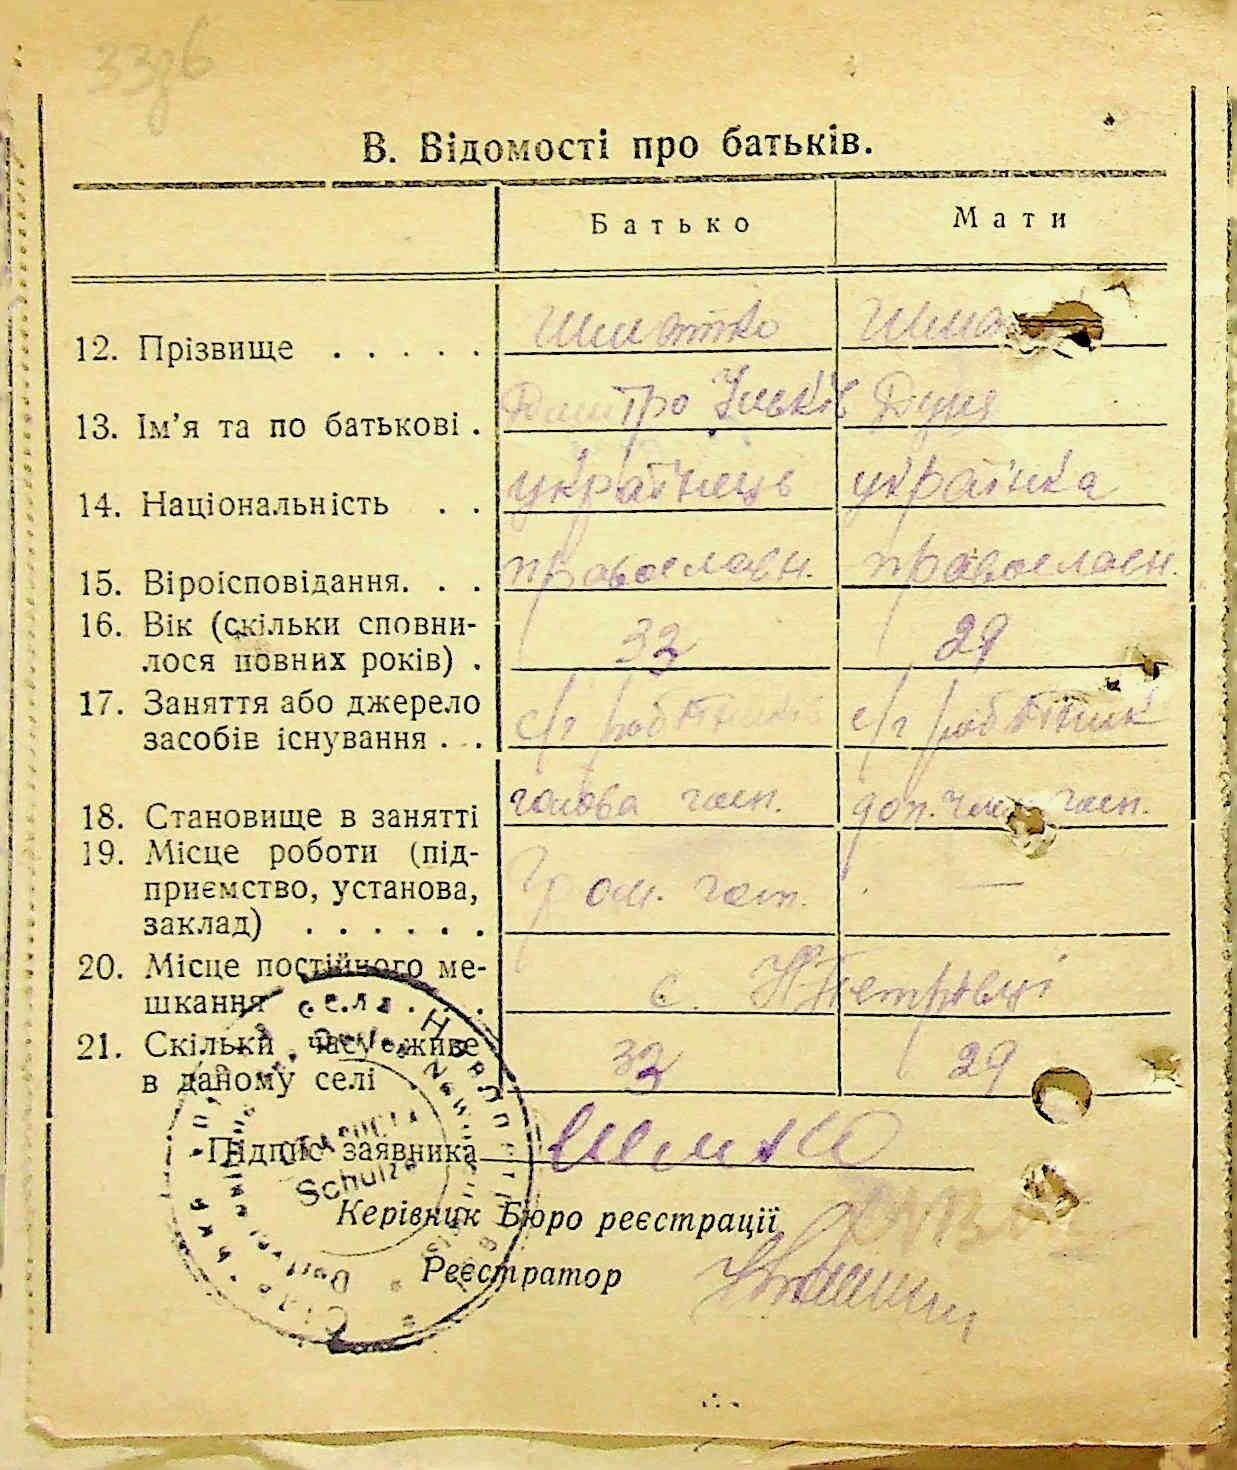 В. Відомості про батьків.
Батько Мати
12. Прізвище . . . . . Шматко
13. Ім’я та по батькові . Дмитро Ільків Дуня
14. Національність . . українець українка
15. Віроісповідання. . . православн. православн.
16. Вік (скільки сповни-
лося повних років) . 32 29
17. Заняття або джерело
засобів існування . . . с/г робітник с/г робітник
18. Становище в занятті голова госп. доп. госп.
19. Місце роботи (під-
приємство, установа,
заклад) . . . . . . Гром. госп. —
20. Місце постійного ме-
шкання . . . с. Н Петрівці
21. Скільки часу живе
в даному селі . 32 29
Підпис заявника
Керівник Бюро реєстрації
Schulze
Реєстратор